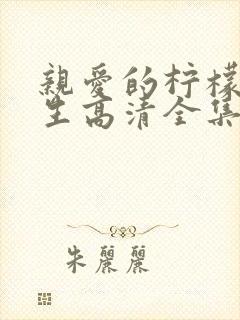 親愛的柠檬
生高清全集
朱麗麗